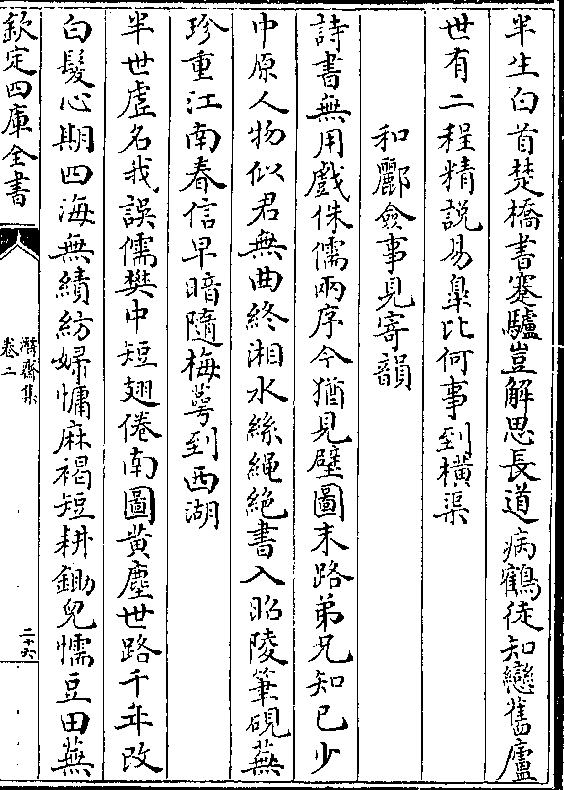 半生白首楚橋書蹇驢豈解思長道病鶴徒知戀舊廬
世有二程精説易臯比何事到橫渠
和酈僉事見寄韻
詩書無用戲侏儒兩序今猶見壁圖末路弟兄知已少
中原人物似君無曲終湘水絲繩絶書入昭陵筆硯蕪
珍重江南春信早暗隨梅萼到西湖
半世虛名我誤儒樊中短翅倦南圖黃塵世路千年改
白髮心期四海無績紡婦慵麻褐短耕鋤兒懦豆田蕪
欽定四庫全書
卷二
潛齋集
二十六